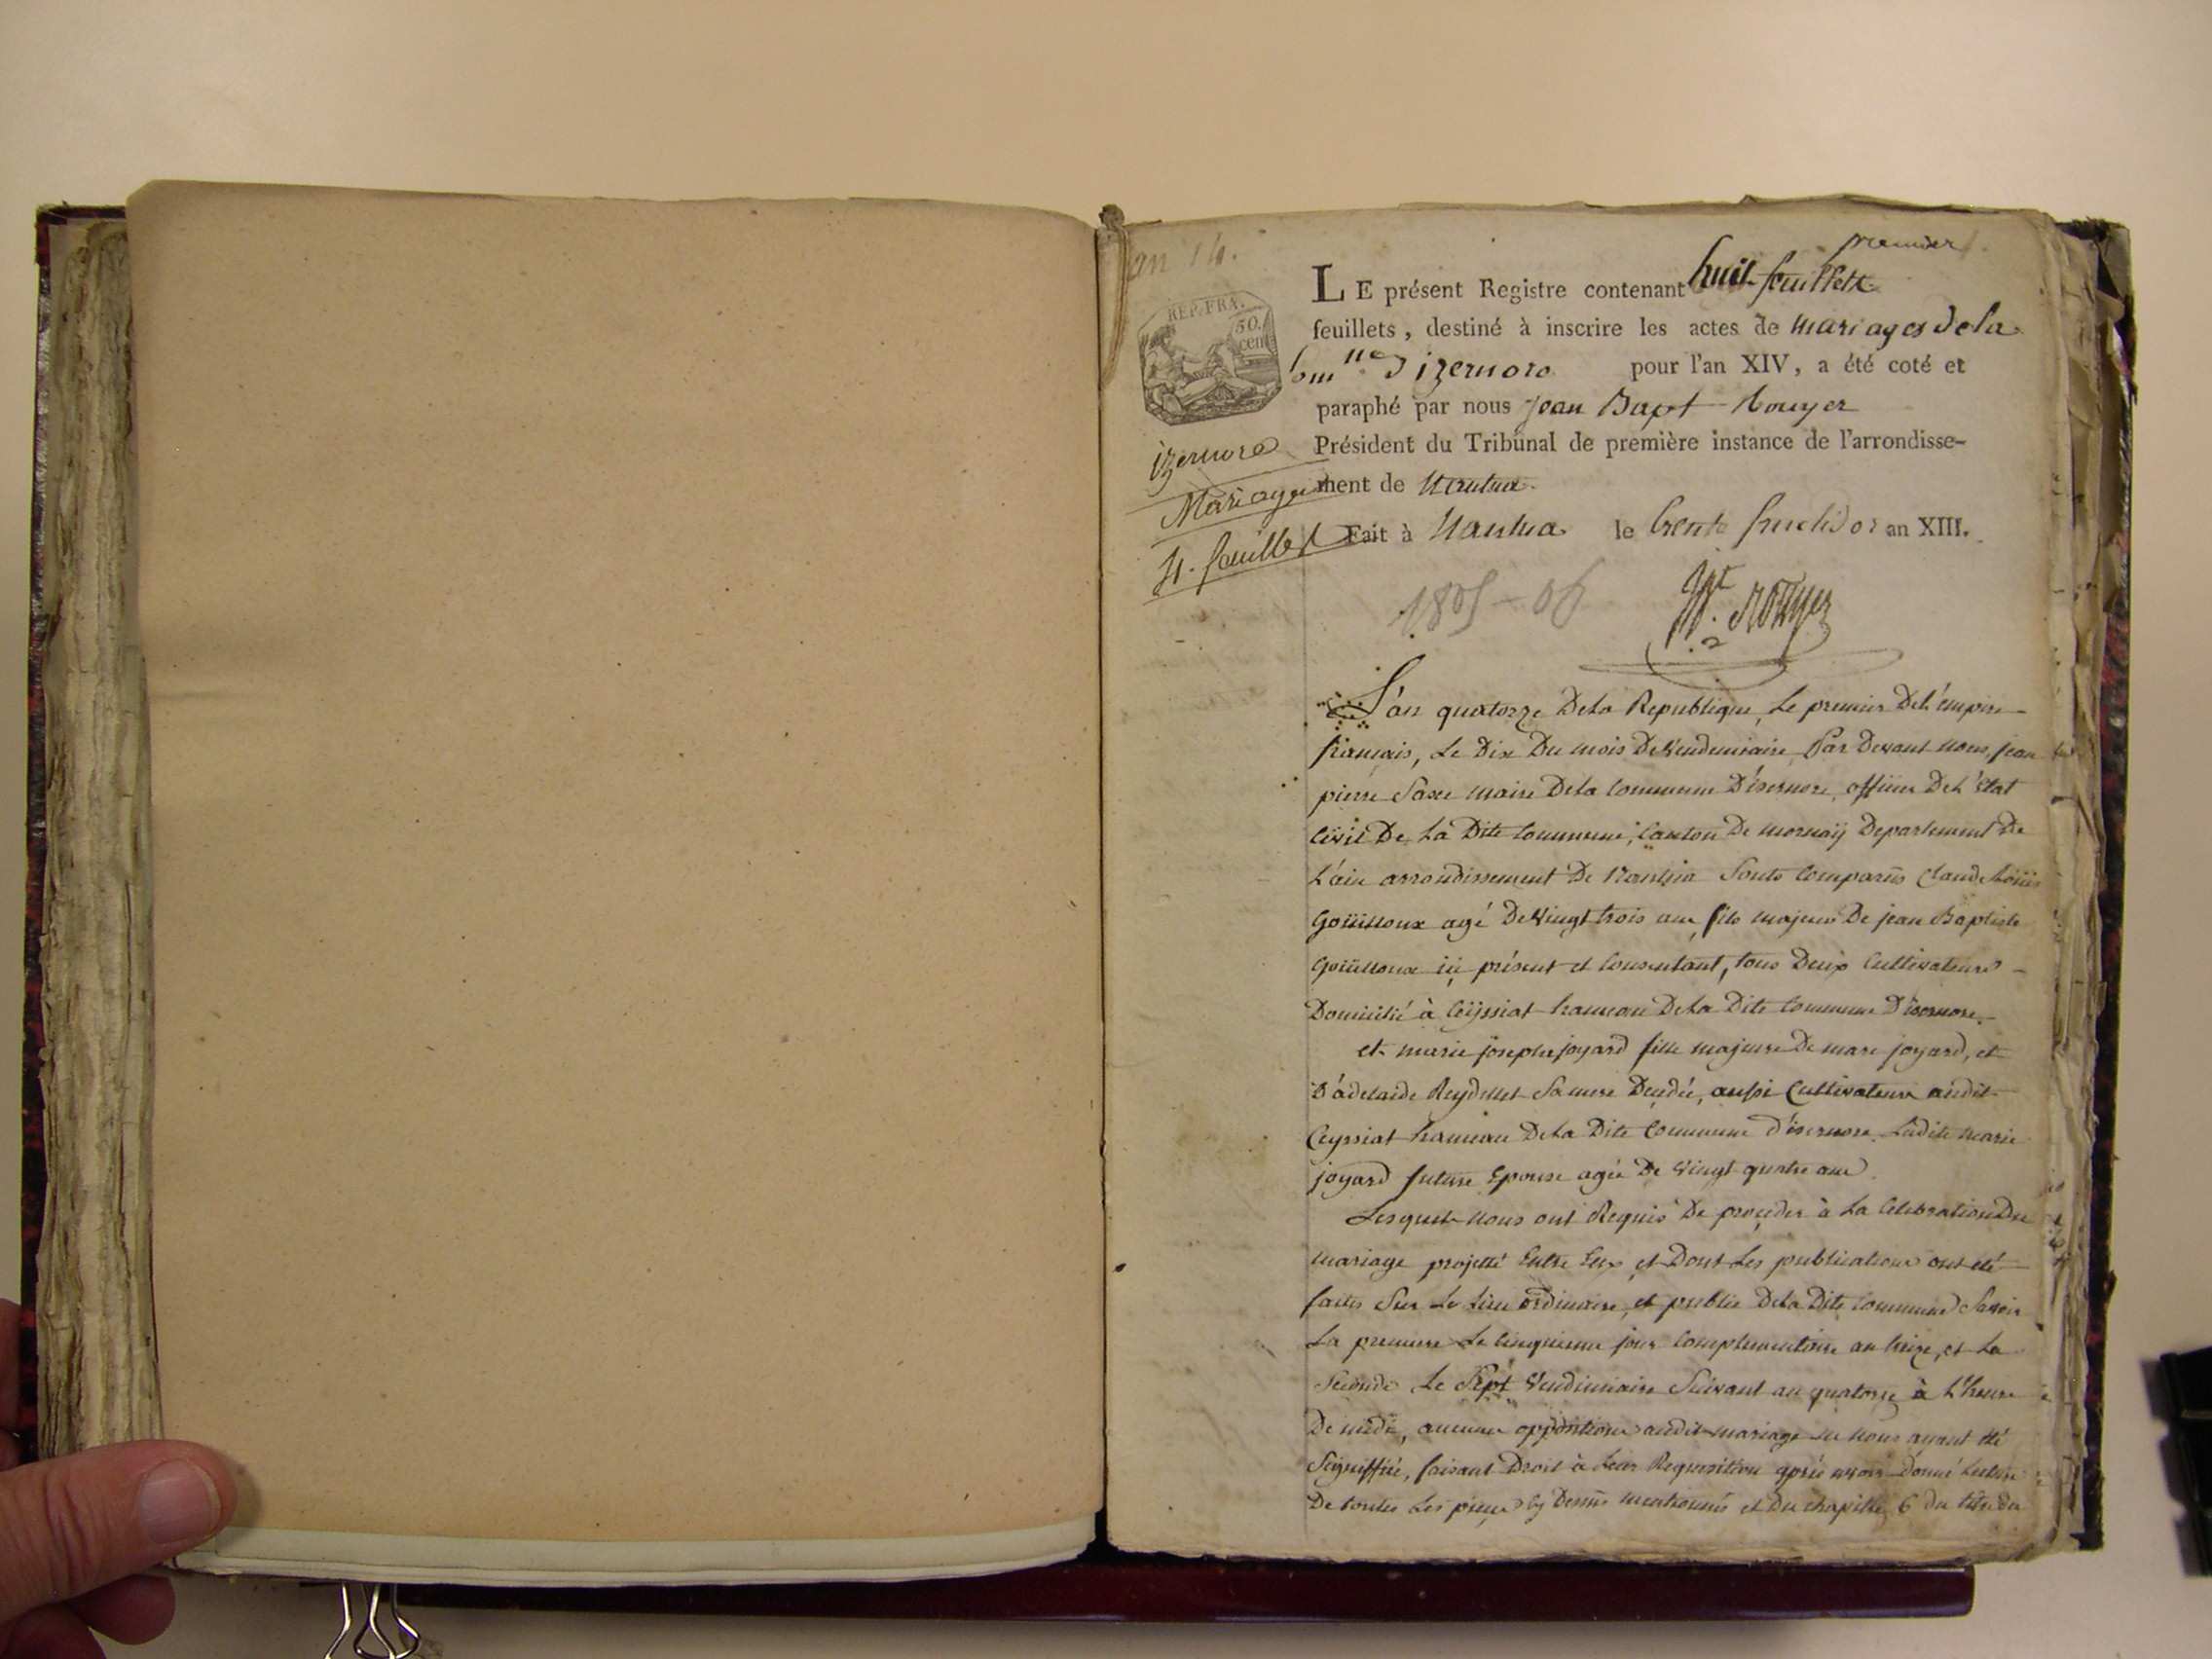 an 14.
premier
REP. FRA.
50.
cent
LE présent Registre contenant huit feuillets
feuillets, destiné à inscrire les actes de mariages dela
Comnne d'izernore pour l'an XIV, a été coté et
paraphé par nous jean Bapt Rouyer
Président du Tribunal de première instance de l'arrondisse-
ment de Nantua.
Fait à Nantua le trente fructidor an XIII.
izernore
Mariages
4. feuillet
1805-06
Rouyer
L'an quatorze Dela Republique, Le premier Del'empire
francais, Le Dix Du mois De Vendemiaire Par Devant nous, jean
pierre maire Dela Commune D'isernore, officier Del'Etat
Civil De La Dite Commune, Canton De mornaÿ Departement De
L'ain arrondissement De Nantua Sonts Comparus Claude Loüis
Goüilloux agé De Vingt trois ans, fils majeur De jean Baptiste
Goüilloux ici présent et Consentant, tous Deux Cultivateurs
Domicilié à Ceÿssiat hameau Dela Dite Commune D'isernore.
et marie josephe joyard fille majeure De marc joyard, et
D'adelaide Reydellet Sa mere Decedée, aussi Cultivateur audit
Ceyssiat hameau Dela Dite Commune d'isernore. Ladite marie
joyard future Epouse agée De Vingt quatre ans
Lesquels nous ont Requis De proceder à La Celebration Du
mariage projetté Entre Eux et Dont Les publications ont été
faites Sur Le Lieu ordinaire, et publics Dela Dite Commune Savoir
La premiere Le Cinquieme jour Complementaire an treize, et La
Seconde Le Sept Vendimiaire Suivant an quatorze à L'heure
De midi, aucune opposition audit mariage ne nous ayant été
Signiffiée, faisant Droit à Leur Requisition après avoir Donné Lecture
De toutes Les pieces Cy Dessus mentionnés et Du chapitre 6 du titre du